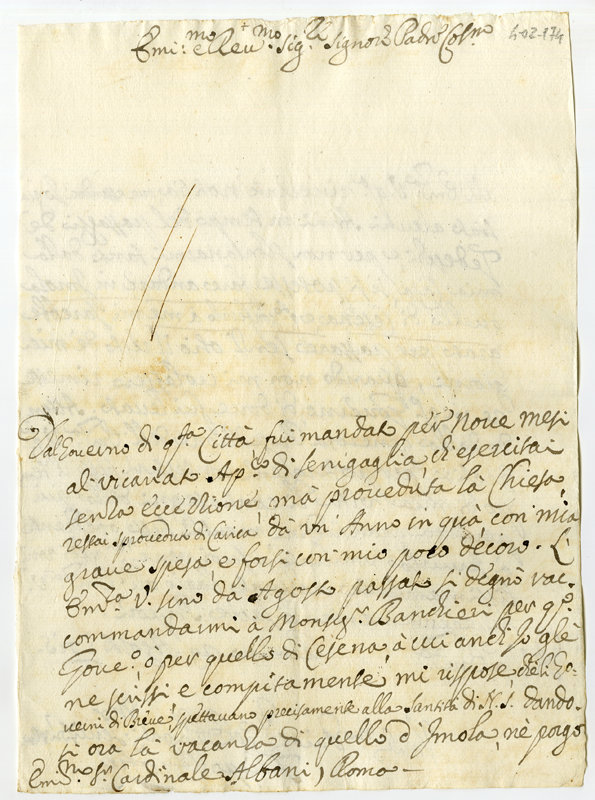 Emi:mo e Reu:mo Sig:r Signore Padrone Col:mo
Dal Gouerno di q:sta Città fui mandato per Noue mesi
al vicariato Ap:co di senigaglia ch'esercitai
senza eccezzione, mà proueduta la Chiesa
restai sproueduto di Carica, dà vn' Anno in quà con mia
graue spesa e forsi con mio poco decoro. L'
Em:za V. sino dà Agosto passato si degnò rac-
commandarmi à Monsig:r Banchieri per q:o
Gou:o, ò per quello di Cesena, à cui anch'io glè
ne scrissi e compitamente mi rispose che li Go-
uerni di Breue spettauano precisamente alla Santità di N. S. dando-
si ora là vacanza di quello d'Imola, nè porgo
Emi:mo S:r Cardinale Albani, Roma -